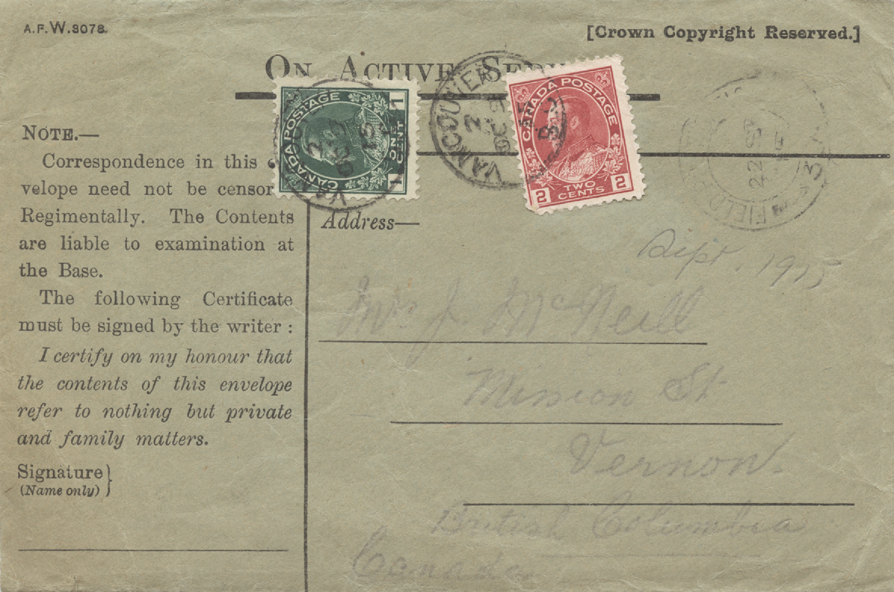 A.F.W.3078.
[Crown Copyright Reserved.]
ON ACTIVE
NOTE.—
Correspondence in this
velope need not be censor
Regimentally. The Contents
are liable to examination at
the Base.
The following Certificate
must be signed by the writer :
I certify on my honour that
the contents of this envelope
refer to nothing but private
and family matters.
Signature}
(Name only)
CANADA POSTAGE
1 ONE CENT 1
CANADA
VANCOUVER
2
OC 9
CANADA POSTAGE
2 TWO CENTS 2
FIELD
22 SE
Address—
Sept. 1915
Mrs J. McNeill
Mission St
Vernon.
British Columbia
Canada